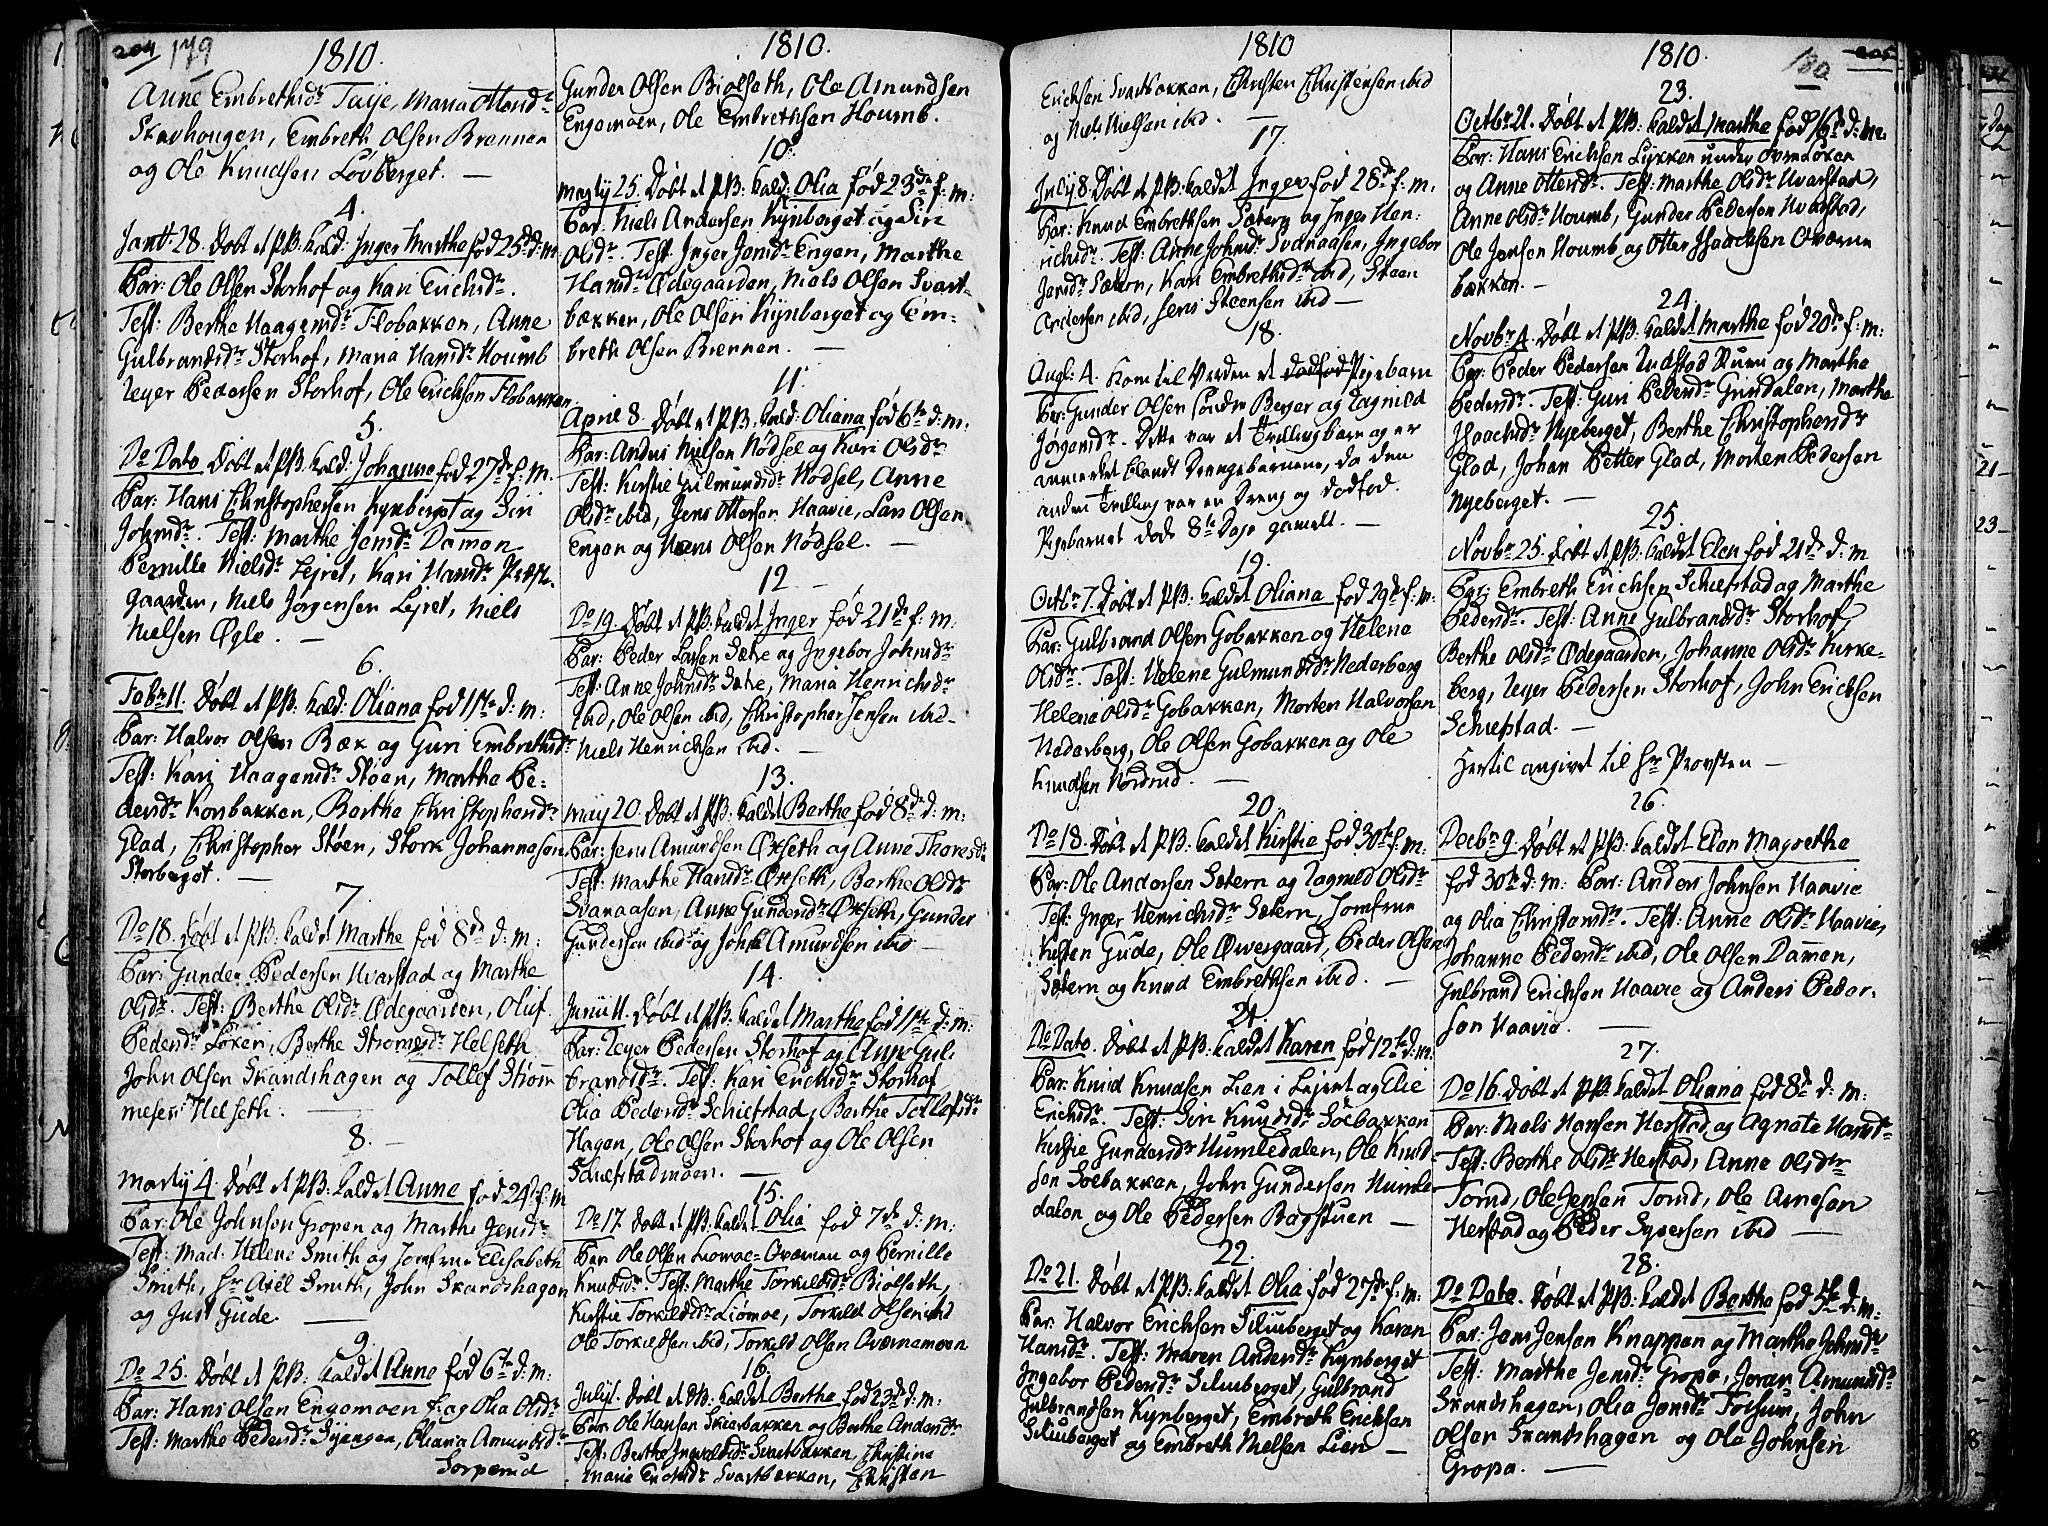 204 179
1810.
Anne Embrethsdr Taije, Maria Ottersdr
Skavhougen, Embreth Olsen Brennen
og Ole Knudsen Løvberget. —
4.
Janr: 28. Døbt et P.B: kald: Inger Marthe fød 25de d: M
Par: Ole Olsen Storhof og Kari Erichsdr.
Test: Berthe Haagensdr Flobakken, Anne
Gulbrandsdr Storhof, Maria Hansdr Houmb
Ueyer Pedersen Storhof, Ole Erichsen Flobakken.
5.
Do Dato. Døbt et P.B: kald: Johanne fød 27de f: M.
Par: Hans Christophersen Kynberget og Siri
Johnsdr. Test: Marthe Jensdr Damen
Pernille Nielsdr Lejret, Kari Hansdr Præste-
gaarden, Niels Jørgensen Lejret, Niels
Nielsen Øgle. —
6.
Febr: 11. Døbt et P.B: kald: Oliana fød 1ste d: m:
Par: Halvor Olsen Bæk og Guri Embrethsdr
Test: Kari Haagensdr Støen, Marthe Pe-
dersdr Korsbakken, Berthe Christophersdr
Glad, Christopher Støen, Stork Johannesen
Storberget. —
7.
Do 18. Døbt et P.B: kaldet Marthe fød 8de d: m:
Par: Gunder Pedersen Hvarstad og Marthe
Olsdr. Test: Berthe Olsdr Ødegaarden, Oluf
Pedersdr Løken, Berthe Strømsdr Helseth
John Olsen Skandshagen og Tollef Strøm
mesen Helseth. —
8. —
Martij 4. Døbt et P.B: kaldet Anne fød 24de f: m
Par: Ole Johnsen Gropen og Marthe Jensdr
Test: Mad: Helene Smith og Jomfrue Elisabeth
Smith, Hr Axel Smith, John Skandshagen
og Just Gude —
9.
Do 25. Døbt et P.B: kaldet Anne fød 6te d: m:
Par: Hans Olsen Engemoen og Olia Olsdr
Test: Marthe Pedersdr Sijengen, Oliana Amundsdr
Sorperud
1810.
Gunder Olsen Biølseth, Ole Asmundsen
Engemoen, Ole Embrethsen Houmb.
10.
Martij 25. Døbt et P.B: kald: Olia fød 23de f: m:
Par: Niels Andersen Kynberget og Siri
Olsdr. Test: Inger Jensdr Engen, Marthe
Hansdr Ødegaarden, Niels Olsen Svart-
bækken, Ole Olsen Kynberget og Em-
breth Olsen Brennen. —
11.
April 8. Døbt et P.B: kald: Oliana fød 6te d: m.
Par: Anders Nielsen Nødsel og Kari Olsdr
Test: Kirstie Gulmundsdr Nødsel, Anne
Olsdr ibid, Jens Ottersen Haavie, Lars Olsen
Engen og Hans Olsen Nødsel. —
12 —
Do 19. Døbt et P.B: kaldet Inger fød 21de f: m:
Par: Peder Larsen Sætre og Ingebor Johnsdr
Test: Anne Johnsdr Sætre, Maria Henrichsdr
ibid, Ole Olsen ibid, Christopher Jensen ibid
Niels Henrichsen ibid. —
13.
May 20. Døbt et P.B: kaldet Berthe fød 8de d: m:
Par: Jens Amundsen Øxseth og Anne Thoresdr
Test: Marthe Hansdr Øxseth, Berthe Olsdr
Svenaasen, Anne Gundersdr Øxseth, Gunder
Gundersen ibid og John Amundsen ibid —
14.
Junii 11. Døbt et P.B: kaldet Marthe fød 1ste d: m:
Par: Ueyer Pedersen Storhof og Anne Gul-
brandsdr. Test: Kari Erichsdr Storhof
Olia Pedersdr Schiefstad, Berthe Tollefsdr
Hagen, Ole Olsen Storhof og Ole Olsen
Schiefstadmoen. —
15.
Do 17. Døbt et P.B: kaldet Olia fød 7de d: m:
Par: Ole Olsen Liomoe Overmoen og Pernille
Knudsdr. Test: Marthe Torkildsdr Biølseth,
Kirstie Torkildsdr Liømoe, Torkild Olsen ibid
Ole Torkildsen ibid, Torkild Olsen Overnemoen
16.
July 1. Døbt et P.B: kaldet Berthe fød 23de d: m:
Par: Ole Hansen Skiærbakken og Berthe Andersdr
Test: Berthe Ingvoldsdr Svartbækken, Christine
Marie Erichsdr Svartbækken, Christen
1810
Erichsen Svartbækken, Christen Christensen ibid
og Niels Nielsen ibid. —
17.
July 8. Døbt et P.B: kaldet Inger fød 28de f: m.
Par: Knud Embrethsen Sætern og Inger Hen-
richsdr. Test: Anne Johnsdr Svenaasen, Ingebor
Jensdr Sætern, Kari Embrethsdr ibid, Steen
Andersen ibid, Jens Steensen ibid —
18.
Augt: 4. Kom til Verden et dødfød Pigebarn
Par: Gunder Olsen Søndre Berger og Ragnild
Jørgensdr. Dette var et Tvillingbarn og er
anmerket blandt Drengebørnene, da den
anden Tvilling var en Dreng og dødfød.
Pigebarnet døde 8te Dage gamelt. —
19.
Octbr 7. Døbt et P.B: kaldet Oliana fød 29de f: m:
Par: Gulbrand Olsen Gobakken og Helene
Olsdr. Test: Helene Gulmundsdr Nederberg
Helene Olsdr Gobakken, Morten Halvorsen
Nederberg, Ole Olsen Gobakken og Ole
Knudsen Nordrud. —
20.
Do 18. Døbt et P.B: kaldet Kirstie fød 30te f: m.
Par: Ole Andersen Sætern og Ragnild Olsdr
Test: Inger Henrichsdr Sætern, Jomfrue
Kirsten Gude, Ole Øvergaard, Peder Olsen
Sætern og Knud Embrethsen ibid. —
21.
Do Dato. Døbt et P.B: kaldet Karen fød 12te d: m:
Par: Knud Knudsen Lien i Lejret og Elie
Erichsdr. Test: Siri Knudsdr Soebakken
Kirstie Gundersdr Humledalen, Ole Knud-
sen Soebakken, John Gundersen Humle-
dalen og Ole Pedersen Bagstuen —
22.
Do 21. Døbt et P.B: kaldet Olia fød 27de f: m:
Par: Halvor Erichsen Siliuberget og Karen
Hansdr. Test: Maren Andersdr Kynberget
Ingebor Pedersdr Siliuberget, Gulbrand
Gulbrandsen Kynberget, Embreth Erichsen
Siliuberget og Embreth Nielsen Lien —
1810. 180 205
23.
Octbr 21. Døbt et P.B: kaldet Marthe fød 16de d: m.
Par: Hans Erichsen Lykken under Øvre Løken
og Anne Ottersdr. Test: Marthe Olsdr Hvarstad,
Anne Olsdr Houmb, Gunder Pedersen Hvarstad,
Ole Jensen Houmb og Otter Isaachsen Qværn
bækken. —
24.
Novbr 4. Døbt et P.B: kaldet Marthe fød 20de f: m:
Par: Peder Pedersen Rudstad Ruen og Marthe
Pedersdr. Test: Guri Pedersdr Grindalen, Marthe
Isaachsdr Nyeberget, Berthe Christophersdr
Glad, Johan Petter Glad, Morten Pedersen
Nyeberget. —
25.
Novbr 25. Døbt et P.B: kaldet Elen fød 21de d: m
Par: Embreth Erichsen Schiefstad og Marthe
Pedersdr. Test: Anne Gulbrandsdr Storhof,
Berthe Olsdr Ødegaarden, Johanne Olsdr Kirke-
berg, Ueyer Pedersen Storhof, John Erichsen
Schiefstad. —
Hertil angivet til Hr Provsten —
26.
Decbr 9. Døbt et P.B: kaldet Elen Magrethe
fød 30te d: m: Par: Anders Johnsen Haavie
og Olia Christensdr. Test: Anne Olsdr Haavie,
Johanne Pedersdr ibid, Ole Olsen Damen,
Gulbrand Erichsen Haavie og Anders Peder-
sen Haavie. —
27.
Do 16. Døbt et P.B: kaldet Oliana fød 8de d: m:
Par: Niels Hansen Herstad og Agnete Hansdr
Test: Berthe Olsdr Herstad, Anne Olsdr
Torud, Ole Jensen Torud, Ole Arnesen
Herstad og Peder Syversen ibid —
28.
Do Dato. Døbt et P.B: kaldet Berthe fød 5te d: m:
Par: Jens Jensen Knappen og Marthe Johnsdr
Test: Marthe Jensdr Gropa, Joran Amundsdr
Skandshagen, Olia Jensdr Fossum, John
Olsen Skandshagen og Ole Johnsen
Gropa. —